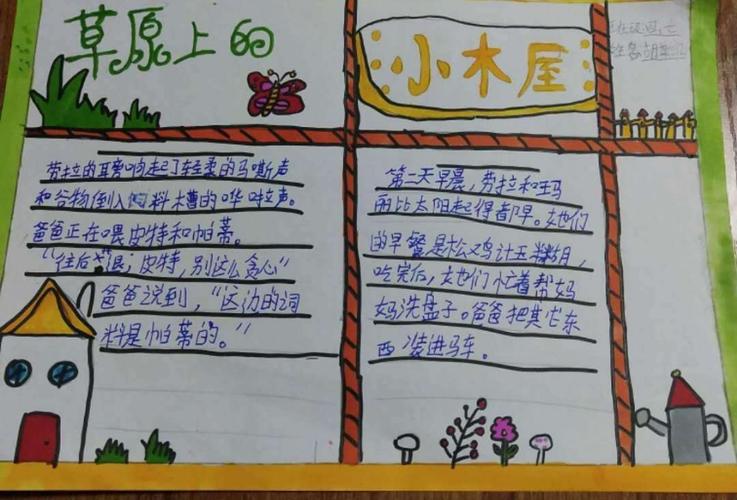 草原上的
小木屋
劳拉的耳旁响起了轻柔的马嘶声
和谷物倒入料槽的哗啦声。
爸爸正在喂皮特和帕蒂。
“往后退，皮特，别这么贪心”
爸爸说到，“这边的饲
料是帕蒂的。”
第二天早晨，劳拉和玛
丽比太阳起得都早。她们
的早餐是松鸡汁玉米糊，
吃完后，她们忙着帮妈
妈洗盘子。爸爸把其它东
西装进马车。